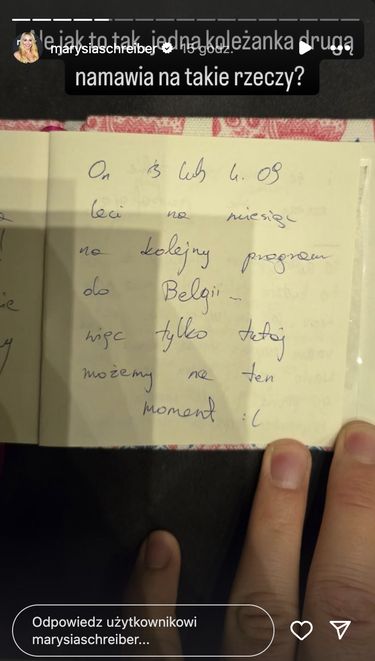 Ale jak to tak, jedna koleżanka drugą
marysiaschreiber 15 godz.
namawia na takie rzeczy?
On 3 lub 4.09
leci na miesiąc
na kolejny program
do Belgii -
więc tylko tutaj
możemy na ten
moment :(
Odpowiedz użytkownikowi
marysiaschreiber...